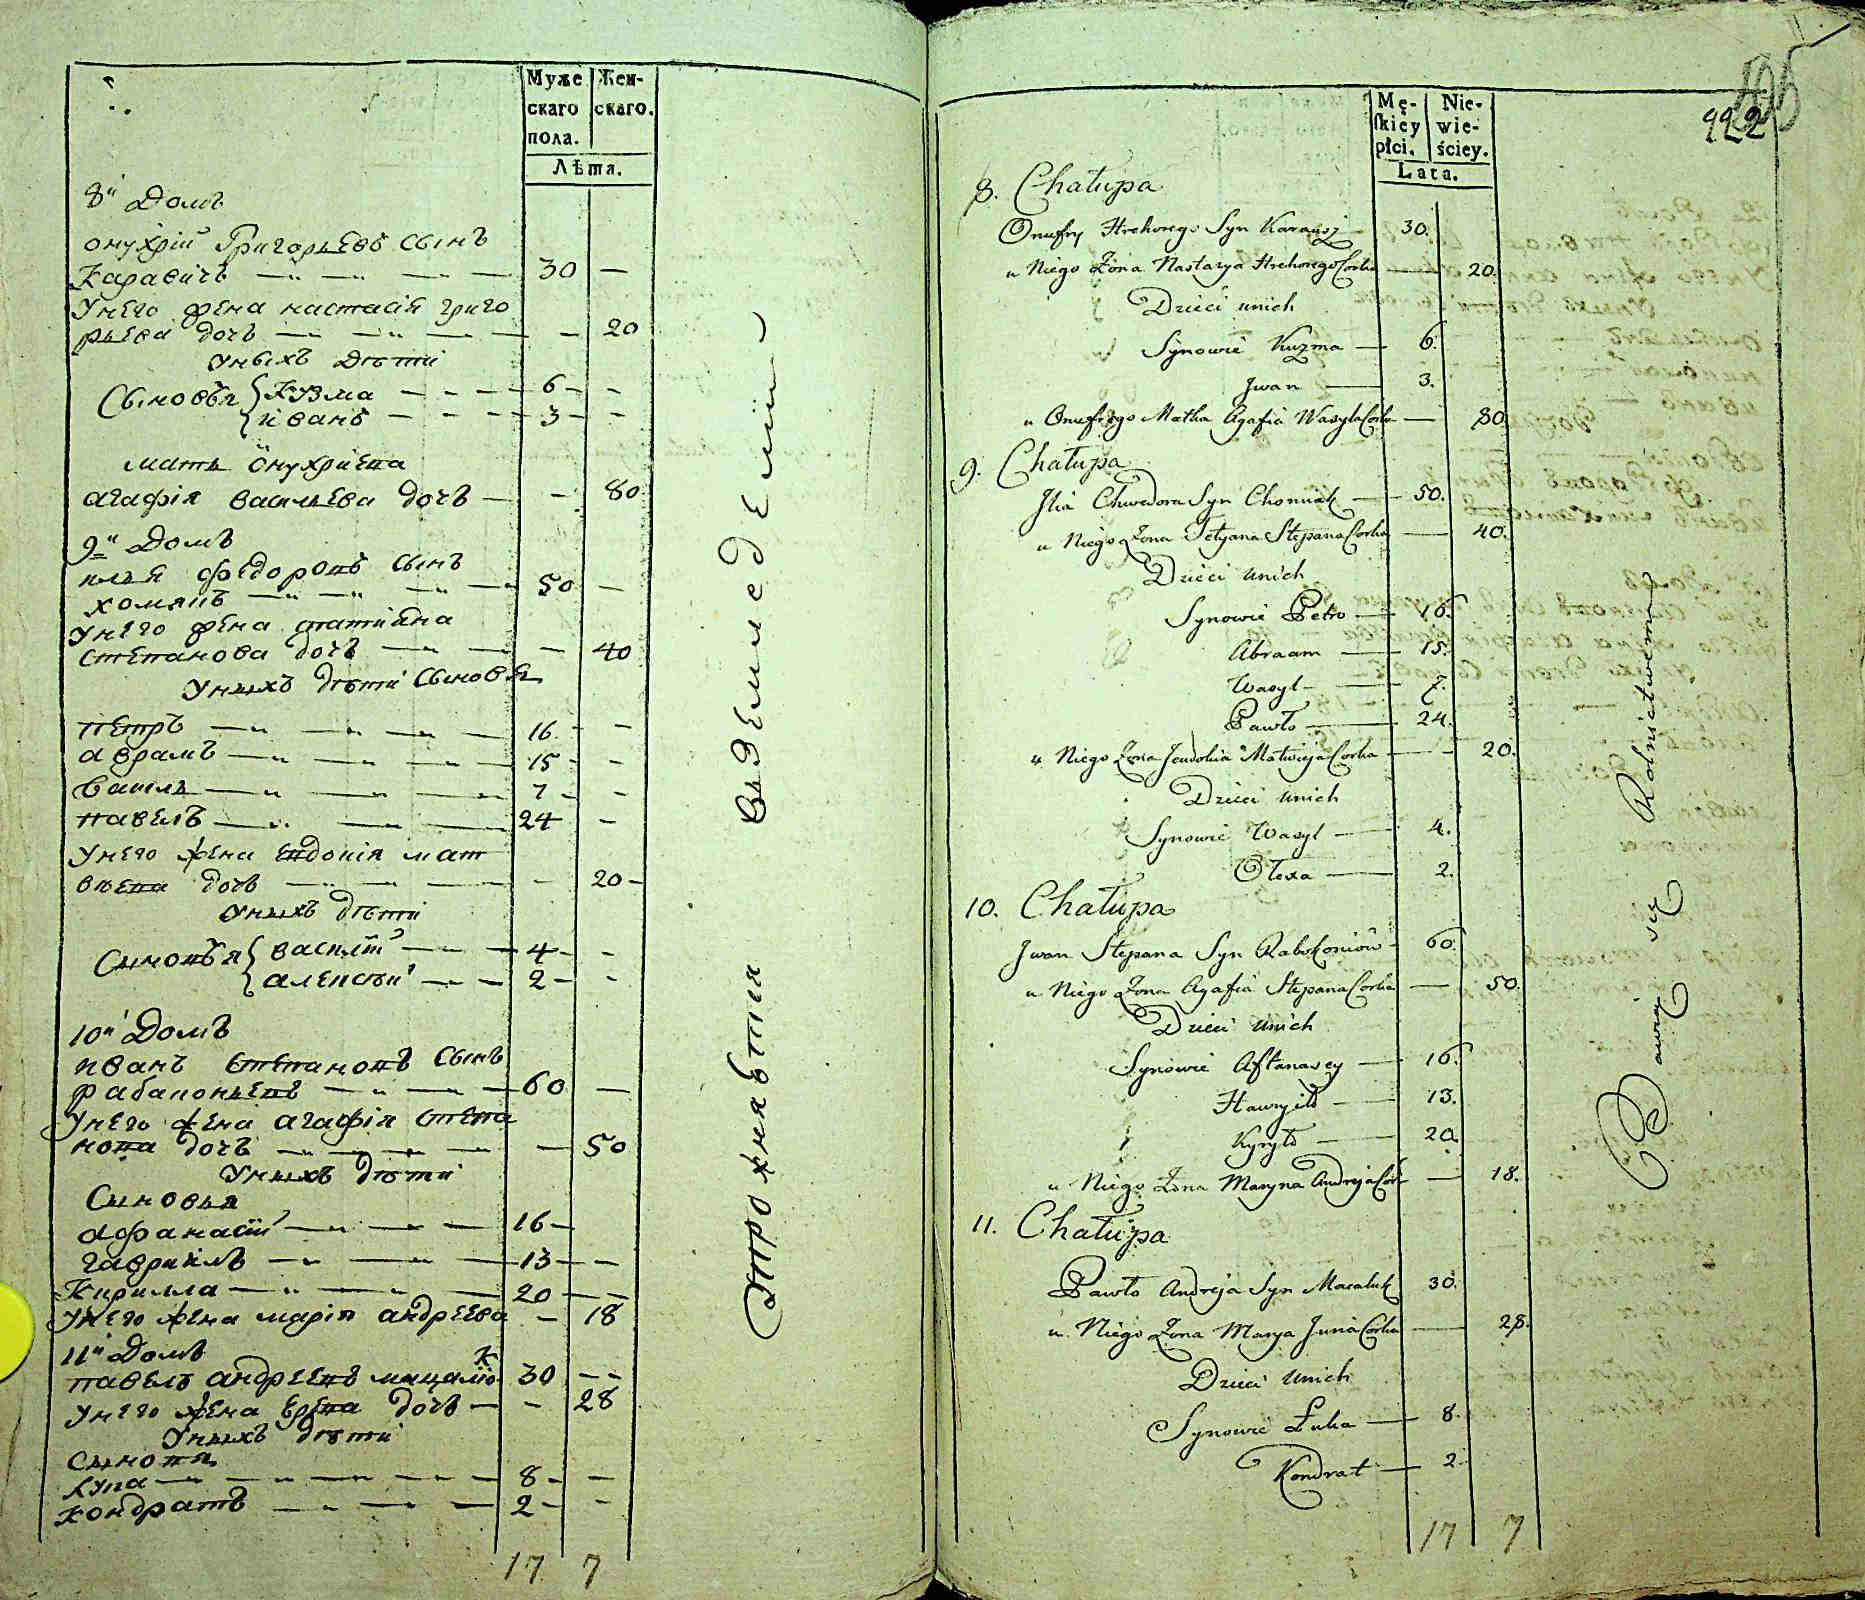 Муже
скаго
пола.
Жен-
скаго.
Лѣта.
8й Домъ
онухрій Григорьевъ сынъ
Каравичъ — 30 —
У него жена настасія григо
рьева дочь — — 20
У ныхъ дѣти
Сыновья { Кузма — 6 —
иванъ — 3 —
мать онухріева
агафія васильева дочь — — 80
9й Домъ
илья федоровъ сынъ
хомякъ — 50 —
У него жена татияна
степанова дочь — — 40
У ныхъ дѣти сыновья
петръ — 16 —
аврамъ — 15 —
василь — 7 —
павелъ — 24 —
У него жена евдокія мат
вѣева дочь — — 20 —
У ныхъ дѣти
Сыновья { василій — 4 —
алексѣй — 2 —
10й Домъ
иванъ степановъ сынъ
рабаконьевъ — 60 —
У него жена агафія степа
нова дочь — — 50
У ныхъ дѣти
Сыновья
афанасій — 16 —
гавриилъ — 13 —
Кирилла — 20 —
У него жена марія андреева — 18
11й Домъ
павелъ андреевъ мацалюк 30 —
У него жена дочь — — 28
У ныхъ дѣти
Сыновя
лука — 8 —
кондратъ — 2 —
17 7
въ земледелии
Упражняется
Mę-
skiey
płci.
Nie-
wie-
ściey.
Lata.
122
8. Chałupa
Onufry Hrehorego Syn Karausz — 30.
u Niego Żona Nastazya Hrehorego Corka — 20.
Dzieci unich
Synowie Kuzma — 6.
Jwan — 3.
u Onufrego Matka Agafia Wasyla Corka — 80
9. Chałupa
Jlia Chwedora Syn Chomiak — 50.
u Niego Żona Tetyana Stepana Corka — 40.
Dzieci unich
Synowie Petro — 16.
Abraam — 15.
Wasyl — 7.
Pawło — 24.
u Niego Żona Jewdokia Matwieja Corka — 20.
Dzieci unich
Synowie Wasyl — 4.
Ołexa — 2.
10. Chałupa
Jwan Stepana Syn Rabokoniów — 60.
u Niego Żona Agafia Stepana Corka — 50.
Dzieci unich
Synowie Aftanasey — 16.
Hawryło — 13.
Kyryło — 20.
u Niego Żona Maryna Andreja Cor — 18.
11. Chałupa
Pawło Andreja Syn Macaluk 30.
u Niego Żona Marya Corka — 28.
Dzieci unich
Synowie Łuka — 8.
Kondrat — 2.
17 7
Bawią się Rolnictwem